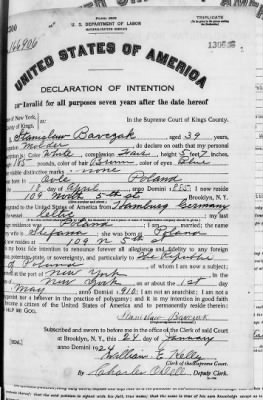 TRIPLICATE
U. S. DEPARTMENT OF LABOR
NATURALIZATION SERVICE
166906
UNITED STATES OF AMERICA
DECLARATION OF INTENTION
Invalid for all purposes seven years after the date hereof
of New York,
In the Supreme Court of Kings County.
y of Kings,
Stanislaw Barczak, aged 39 years,
Molder, do declare on oath that my personal
is: Color White, complexion Fair, height 5 feet 7 inches,
185 pounds, color of hair Brown, color of eyes Blue
visible distinctive marks none
Poland
18 day of April, anno Domini 1885: I now reside
109 North 5th st Brooklyn, N. Y.
to the United States of America from Hamburg Germany
; my last
residence was Poland; I am married; the name
is Stefania; she was born at Poland
resides at 109 n 5 st
bona fide intention to renounce forever all allegiance and fidelity to any foreign
potentate, state, or sovereignty, and particularly to The Republic
of Poland, of whom I am now a subject;
at the port of New York, in the
New York, on or about the 1st day
May, anno Domini 1910: I am not an anarchist; I am not a
nor a believer in the practice of polygamy; and it is my intention in good faith
become a citizen of the United States of America and to permanently reside therein:
HELP ME GOD.
Stanislaw Barczak
Subscribed and sworn to before me in the office of the Clerk of said Court
at Brooklyn, N. Y., this 24 day of January
anno Domini 1924
William E Kelly
Clerk of the Supreme Court.
By Charles Odell, Deputy Clerk.